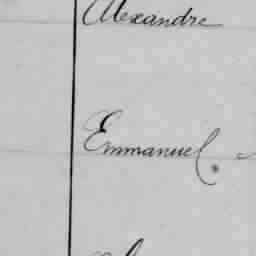 Alexandre
Emmanuel